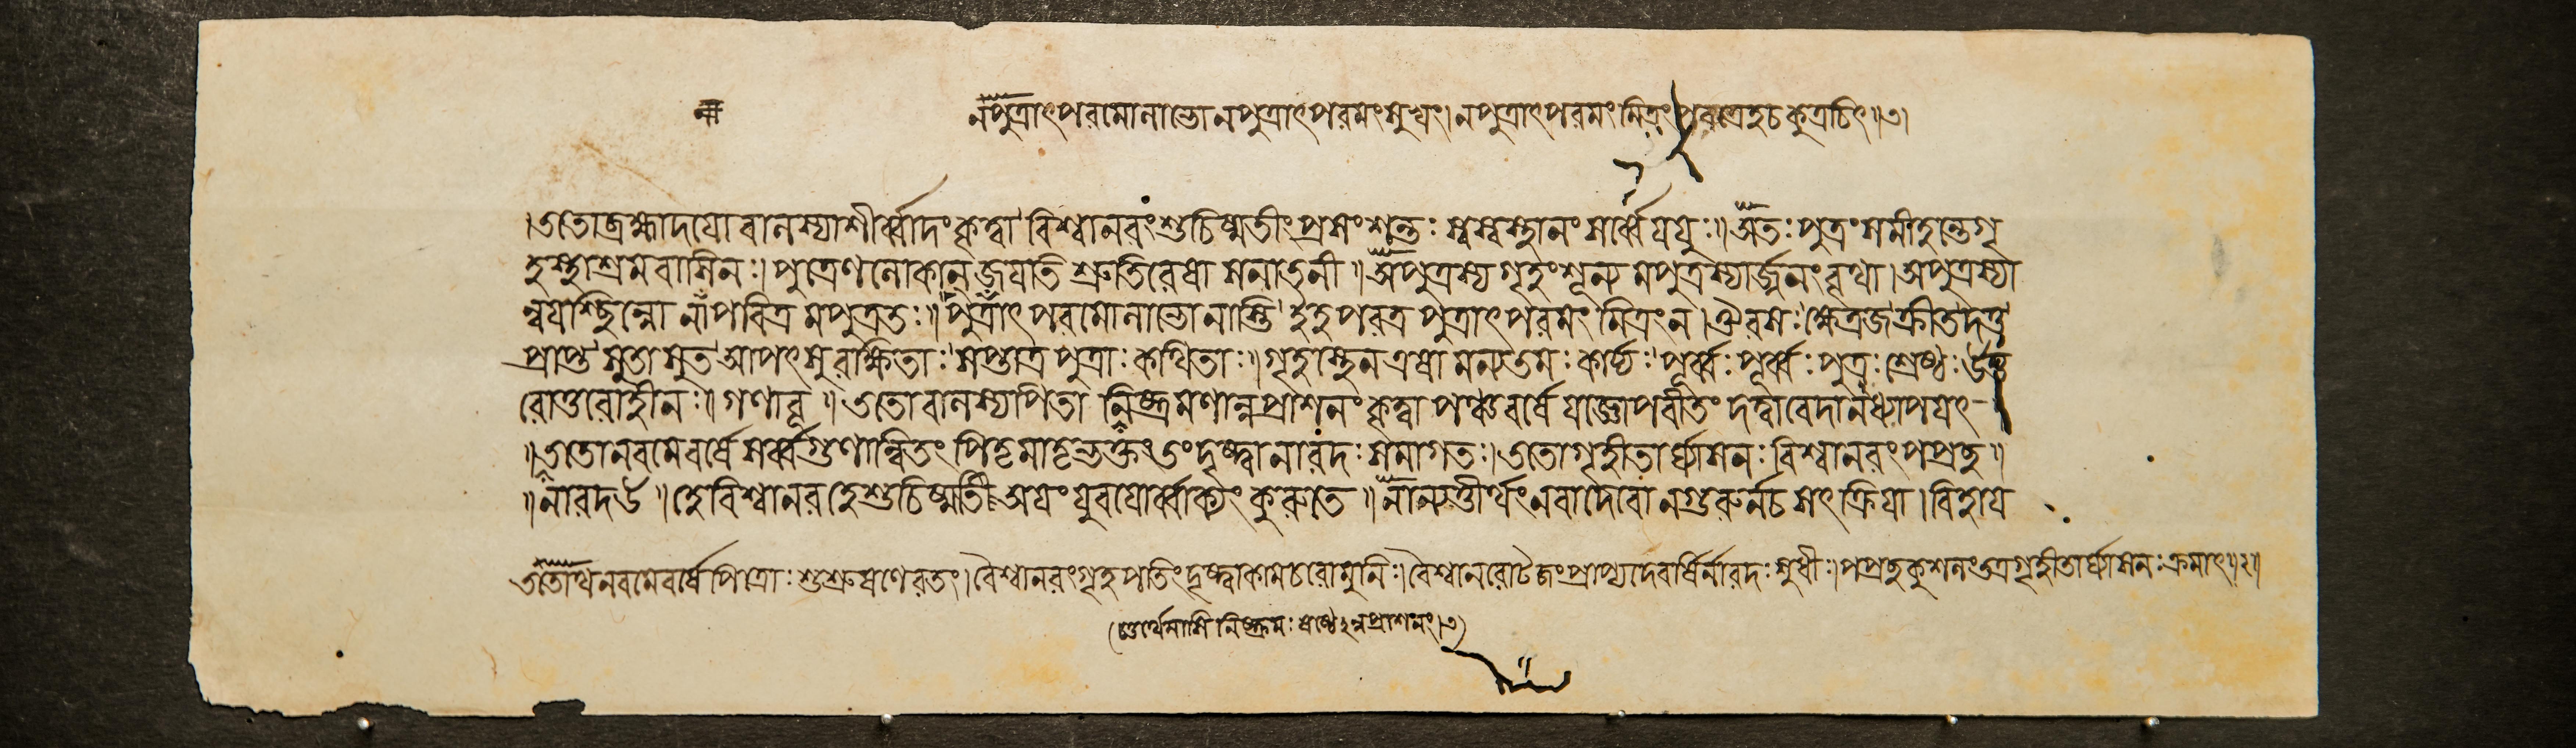 ন পুত্রাৎ পরমো লাভো ন পুত্রাৎ পরমং সুখং। ন পুত্রাৎ পরমং মিত্রং পরত্রেহ চ কুত্রচিৎ॥৩।
।ততো ব্রহ্মাদযো বালস্যাশীর্ব্বাদং কৃত্বা বিশ্বানরং শুচিষ্মতীং প্রশংশন্তঃ স্বস্বস্থানং সর্ব্বে যযুঃ॥ অতঃ পুত্রং সমীহন্তে গৃ
হস্থাশ্রমবাসিনঃ। পুত্রেণ লোকান্ জযতি শ্রুতিরেষা সনাতনী॥ অপুত্রস্য গৃহং শূন্যমপুত্রস্যার্জ্জনং বৃথা। অপুত্রস্যা
ন্বযশ্ছিন্নো নাপবিত্রমপুত্রতঃ॥ পুত্রাৎ পরমো লাভো নাস্তি ইহ পরত্র পুত্রাৎ পরমং মিত্রং ন। ঔরসঃ ক্ষেত্রজ ক্রীত দত্ত
প্রাপ্ত সুতাসুত আপৎসু রক্ষিতাঃ সপ্তাত্র পুত্রাঃ কথিতাঃ। গৃহস্থেন এষামন্যতমঃ কার্য্যঃ পূর্ব্বঃ পূর্ব্বঃ পুত্রঃ শ্রেষ্ঠঃ উত্ত
রোত্তরো হীনঃ॥ ততো বালস্য পিতা নিষ্ক্রমণান্নপ্রাশনং কৃত্বা পঞ্চবর্ষে যজ্ঞোপবীতং দত্বা বেদানধ্যাপযৎ
॥ততো নবমে বর্ষে সর্ব্বগুণান্বিতং পিতৃমাতৃভক্তং তং দৃষ্ট্বা নারদঃ সমাগতঃ। ততো গৃহীতার্ঘ্যাসনঃ বিশ্বানরং পপ্রছ॥
॥নারদ উ॥ হে বিশ্বানর হে শুচিষ্মতি অযং যুবযোর্ব্বাক্যং কুরুতে॥ নান্যত্তীর্থং ন বা দেবো ন গুরুর্ন চ সৎক্রিযা। বিহায
ততোথ নবমে বর্ষে পিত্রোঃ শুশ্রুষণে রতং। বৈশ্বানরং গৃহপতিং দৃষ্ট্বা কামচরো মুনিঃ। বৈশ্বানরোটজং প্রাপ্য দেবর্ষির্নারদঃ সুধীঃ। পপ্রছ কুশলং তত্র গৃহীতার্ঘ্যাসনঃ ক্রমাৎ॥২॥
(চতুর্থে মাসি নিষ্ক্রমঃ ষষ্ঠেঽন্নপ্রাশনং।৩)